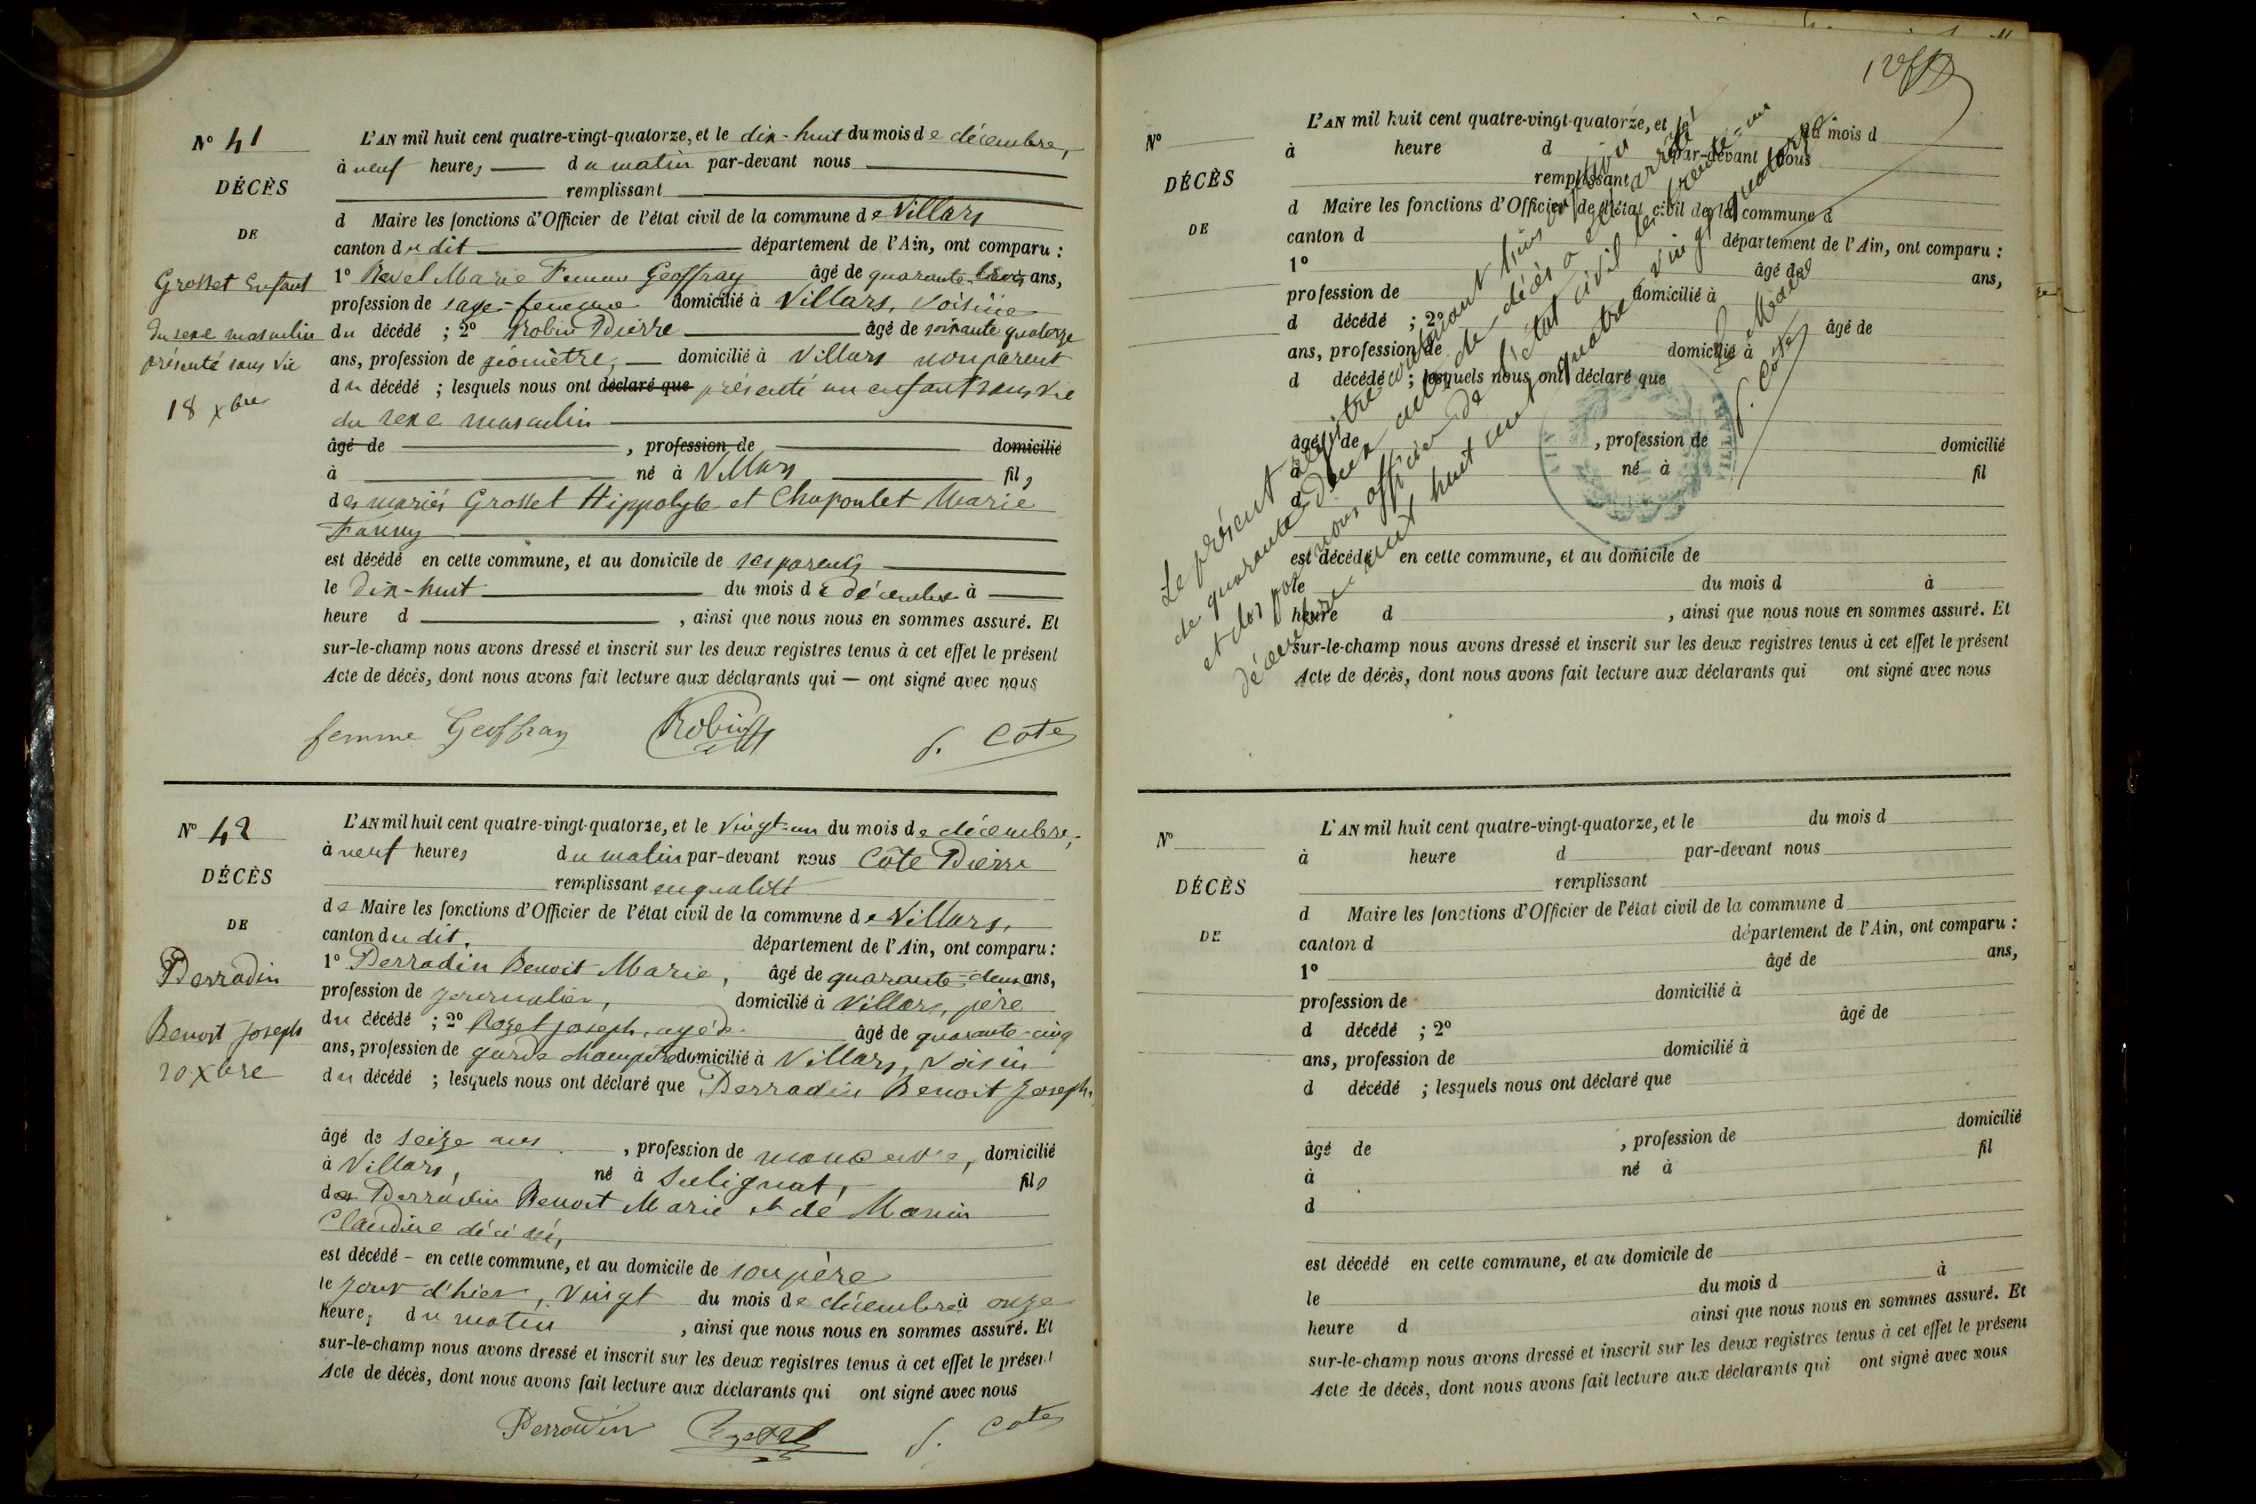 N° 41
DÉCÈS
DE
Grosset Enfant
du sexe masculin
présenté sans vie
18 xbre
L'AN mil huit cent quatre-vingt-quatorze, et le dix-huit du mois de décembre,
à neuf heures du matin par-devant nous
remplissant
d Maire les fonctions d'Officier de l'état civil de la commune de Villars
canton du dit département de l'Ain, ont comparu :
1° Revel Marie Femme Geoffray âgé de quarante-trois ans,
profession de sage-femme domicilié à Villars, voisine
du décédé ; 2° Robin Pierre âgé de soixante quatorze
ans, profession de géomètre, domicilié à Villars non parent
du décédé ; lesquels nous ont déclaré que présenté un enfant sans vie
du sexe masculin
âgé de , profession de domicilié
à né à Villars fils
des mariés Grosset Hippolyte et Chapoulet Marie
Fanny
est décédé en cette commune, et au domicile de ses parents
le dix-huit du mois de décembre à
heure d , ainsi que nous nous en sommes assuré. Et
sur-le-champ nous avons dressé et inscrit sur les deux registres tenus à cet effet le présent
Acte de décès, dont nous avons fait lecture aux déclarants qui — ont signé avec nous
femme Geoffray Robin P. Cote
N° 42
DÉCÈS
DE
Perradin
Benoit Joseph
20 xbre
L'AN mil huit cent quatre-vingt-quatorze, et le vingt-un du mois de décembre,
à neuf heures du matin par-devant nous Côte Pierre
remplissant en qualité
de Maire les fonctions d'Officier de l'état civil de la commune de Villars,
canton du dit, département de l'Ain, ont comparu :
1° Perradin Benoit Marie, âgé de quarante-deux ans,
profession de journalier, domicilié à Villars, père
du décédé ; 2° Rozet Joseph, âgé de quarante-cinq
ans, profession de garde champêtre domicilié à Villars, voisin
du décédé ; lesquels nous ont déclaré que Perradin Benoit Joseph,
âgé de seize ans , profession de manœuvre, domicilié
à Villars, né à Sulignat, fils
de Perradin Benoit Marie et de Manin
Claudine décédée,
est décédé – en cette commune, et au domicile de son père
le jour d'hier, vingt du mois de décembre à onze
heures du matin , ainsi que nous nous en sommes assuré. Et
sur-le-champ nous avons dressé et inscrit sur les deux registres tenus à cet effet le présent
Acte de décès, dont nous avons fait lecture aux déclarants qui ont signé avec nous
Perradin Rozet P. Cote
N°
DÉCÈS
DE
L'AN mil huit cent quatre-vingt-quatorze, et le du mois d
à heure d par-devant nous
remplissant
d Maire les fonctions d'Officier de l'état civil de la commune d
canton d département de l'Ain, ont comparu :
1° âgé de ans,
profession de domicilié à
d décédé ; 2° âgé de
ans, profession de domicilié à
d décédé ; lesquels nous ont déclaré que
âgé de , profession de domicilié
à né à fil
d
est décédé en cette commune, et au domicile de
le du mois d à
heure d , ainsi que nous nous en sommes assuré. Et
sur-le-champ nous avons dressé et inscrit sur les deux registres tenus à cet effet le présent
Acte de décès, dont nous avons fait lecture aux déclarants qui ont signé avec nous
Le présent registre contenant
de quarante-deux actes de décès a été arrêté
et clos par nous officier de l'état civil le trente-un
décembre mil huit cent quatre vingt quatorze
Le Maire
P. Cote
N°
DÉCÈS
DE
L'AN mil huit cent quatre-vingt-quatorze, et le du mois d
à heure d par-devant nous
remplissant
d Maire les fonctions d'Officier de l'état civil de la commune d
canton d département de l'Ain, ont comparu :
1° âgé de ans,
profession de domicilié à
d décédé ; 2° âgé de
ans, profession de domicilié à
d décédé ; lesquels nous ont déclaré que
âgé de , profession de domicilié
à né à fil
d
est décédé en cette commune, et au domicile de
le du mois d à
heure d ainsi que nous nous en sommes assuré. Et
sur-le-champ nous avons dressé et inscrit sur les deux registres tenus à cet effet le présent
Acte de décès, dont nous avons fait lecture aux déclarants qui ont signé avec nous